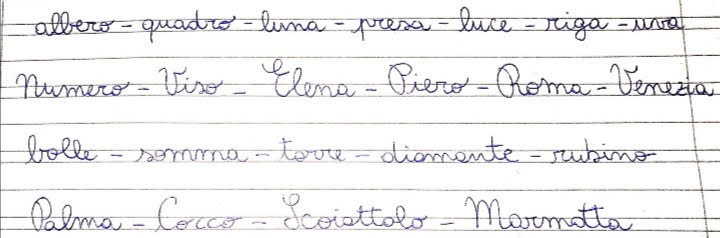 albero - quadro - luna - presa - luce - riga - uva
Numero - Viso - Elena - Piero - Roma - Venezia
bolle - somma - torre - diamante - rubino
Palma - Cocco - Scoiattolo - Marmotta